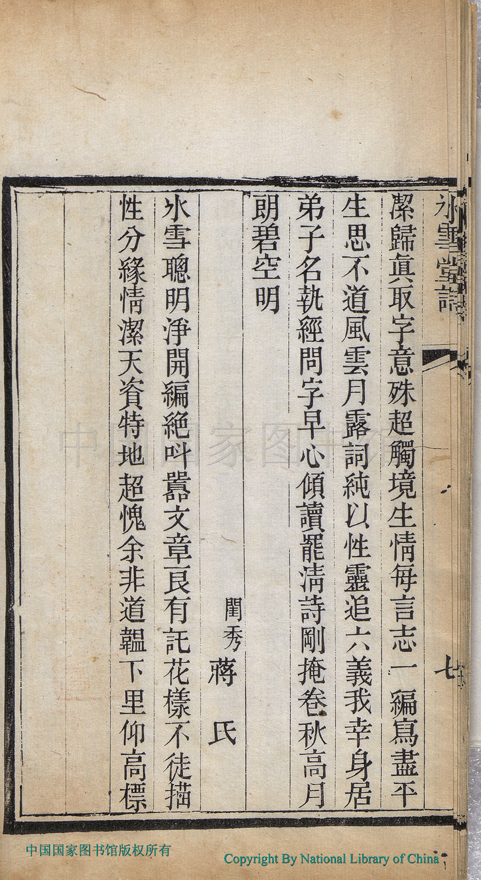 氷雪堂詩
七
潔歸眞取字意殊超觸境生情每言志一編寫盡平
生思不道風雲月露詞純以性靈追六義我幸身居
弟子名執經問字早心傾讀罷淸詩剛掩卷秋高月
朗碧空明
閨秀蔣氏
氷雪聰明淨開編絕呌嚣文章良有託花樣不徒描
性分緣情潔天資特地超愧余非道韞下里仰高標
中国国家图书馆
中国国家图书馆版权所有
Copyright By National Library of China